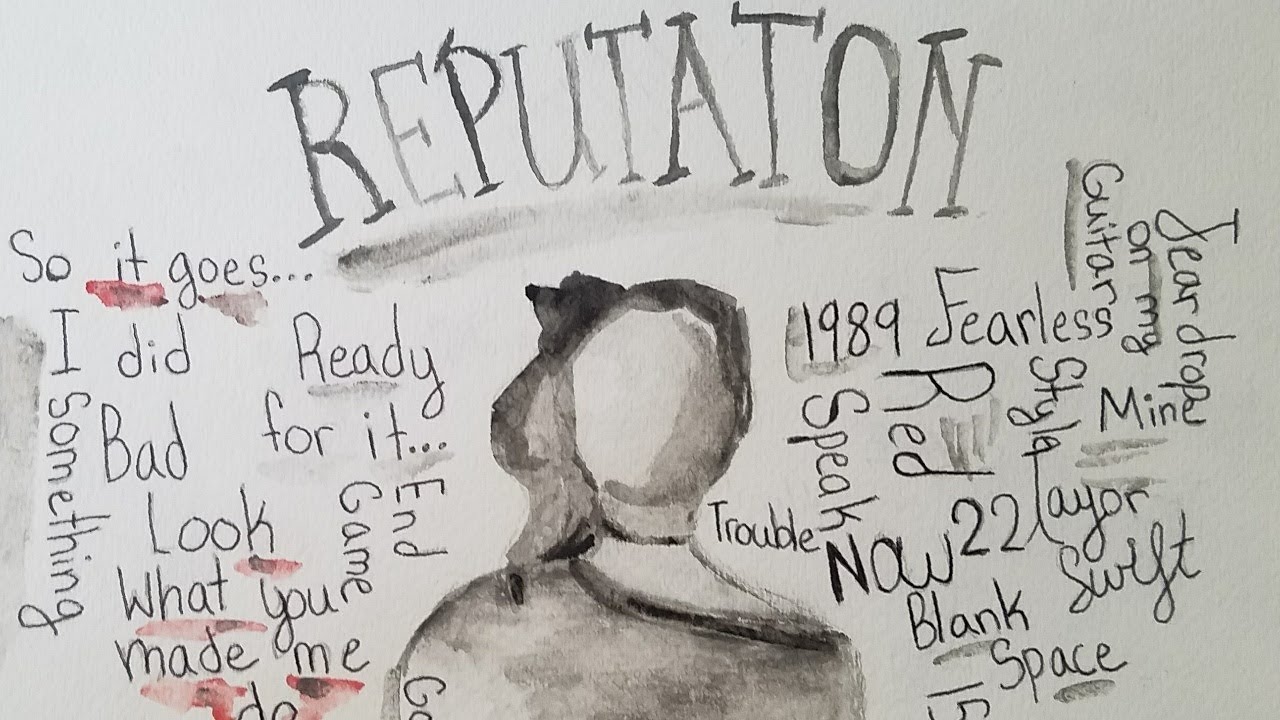 REPUTATON
So it goes...
I did
Something
Bad
Ready
for it...
End
Game
Look
What you
made me
do
Go
1989
Fearless
Red
Speak
Now
Guitar
Teardrops
on my
Style
Mine
Trouble
22
Taylor
Swift
Blank
Space
15